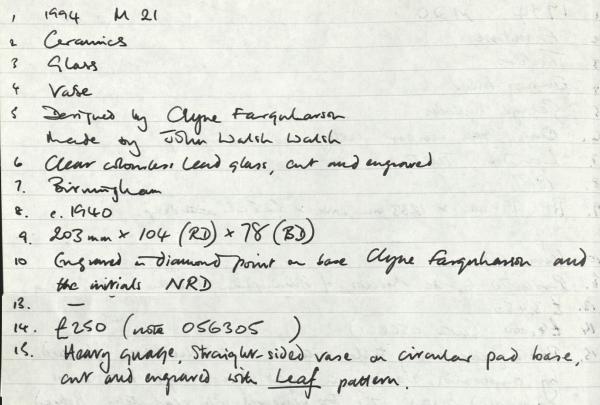 1 1994 M 21
2 Ceramics
3 Glass
4 Vase
5 Designed by Clyne Farquharson
Made by John Walsh Walsh
6 Clear colourless lead glass, cut and engraved
7. Birmingham
8. c. 1940
9. 203 mm x 104 (RD) x 78 (BD)
10 Engraved in diamond point on base Clyne Farquharson and
the initials NRD
13. —
14. £250 (note 056305 )
15. Heavy guage, straight-sided vase on circular pad base,
cut and engraved with Leaf pattern.